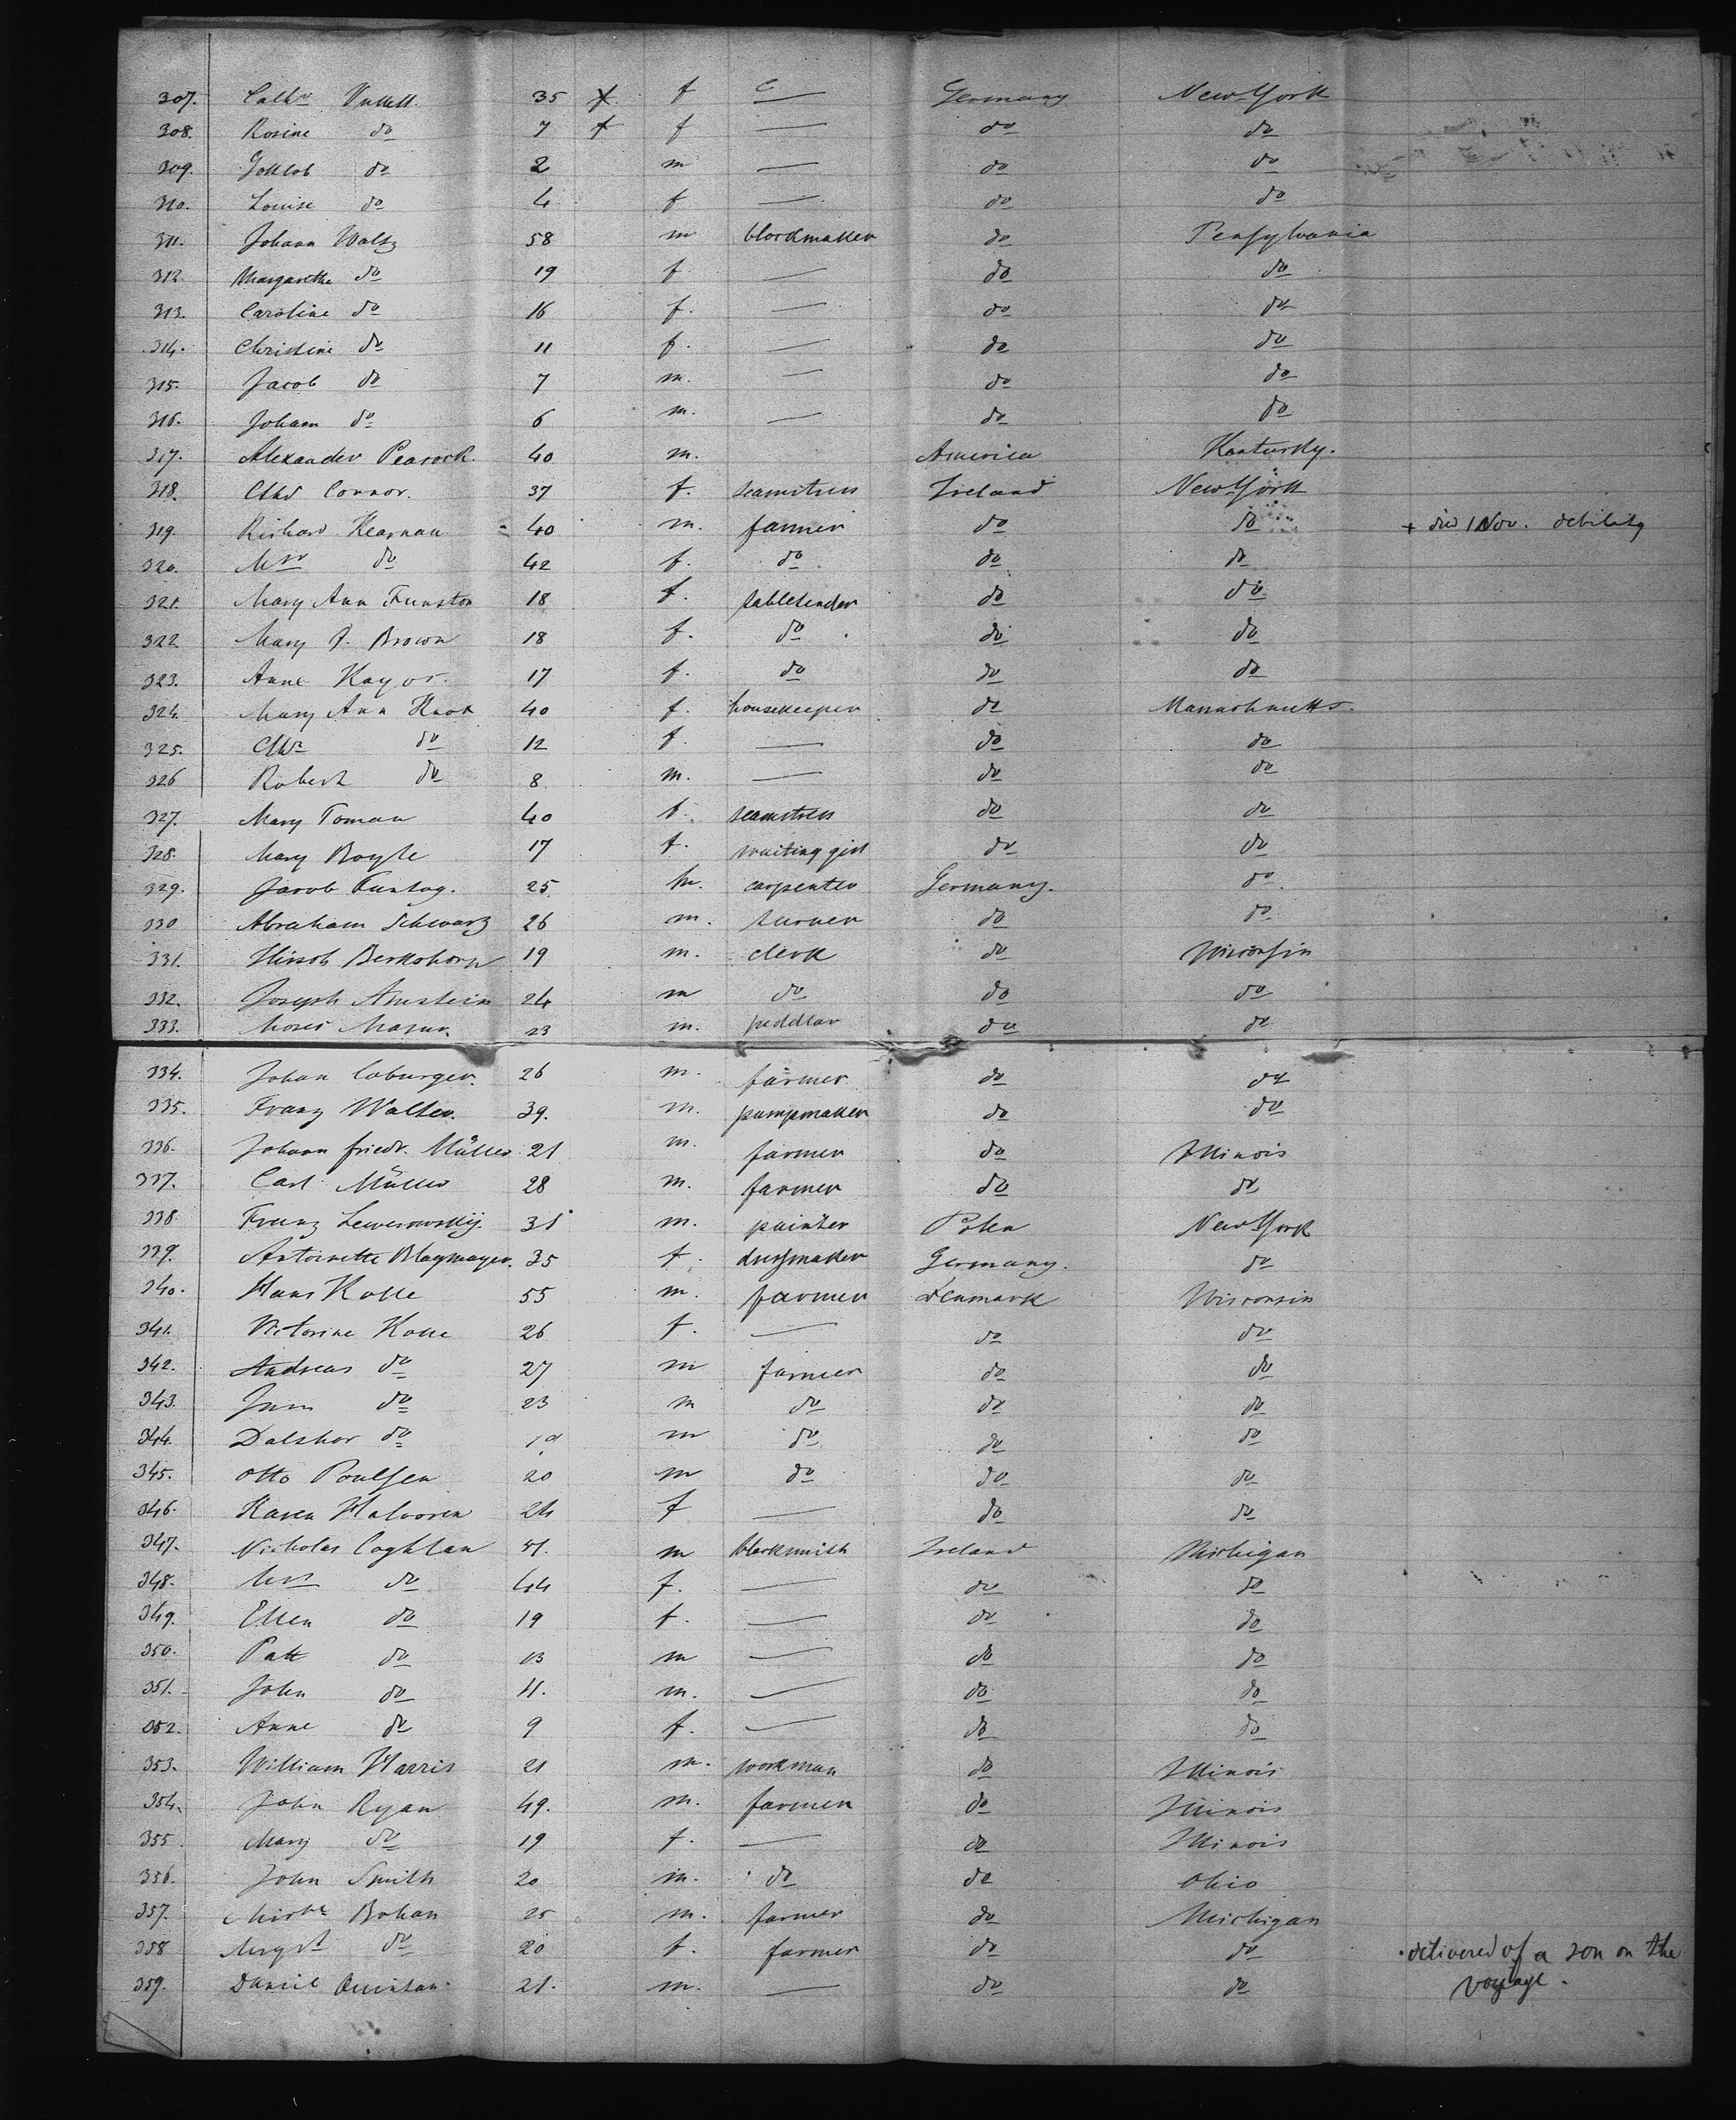 307. Cathe 35 f — Germany New York
308. Rosine do 7 f — do do
309. Gottlob do 2 m — do do
310. Louise do 4 f — do do
311. Johann Waltz 58 m blockmaker do Pensylvania
312. Margarethe do 19 f — do do
313. Caroline do 16 f. — do do
314. Christine do 11 f. — do do
315. Jacob do 7 m. — do do
316. Johann do 6 m. — do do
317. Alexander Peacock 40 m. America Kentucky.
318. Connor. 37 f. seamstress Ireland New York
319. Richard Kearnan 40 m. farmer do do + died 1 Nov. debility
320. Mrs do 42 f. do do do
321. Mary Ann Funston 18 f. tabletender do do
322. Mary J. Brown 18 f. do do do
323. Anne Kayor. 17 f. do do do
324. Mary Ann Knox 40 f. housekeeper do Massachusetts.
325. do 12 f. — do do
326 Robert do 8 m. — do do
327. Mary Toman 40 f. seamstress do do
328. Mary Boyle 17 f. waiting girl do do
329. Jacob Funtag. 25 m. carpenter Germany. do
330 Abraham Schwarz 26 m. turner do do
331. Hirsch 19 m. clerk do Wisconsin
332. Joseph Amstein 24 m do do do
333. Moses 23 m. peddlar do do
334. Johan Coburger. 26 m. farmer do do
335. Franz Walter. 39. m. pumpmaker do do
336. Johann friedr. Müller 21 m. farmer do Illinois
337. Carl Müller 28 m. farmer do do
338. Franz 31 m. painter Polen New York
339. Antoinette 35 f. dressmaker Germany. do
340. Hans Kolle 55 m. farmer Denmark Wisconsin
341. Victorine Kolle 26 f. — do do
342. Andreas do 27 m farmer do do
343. Jens do 23 m do do do
344. do 19 m do do do
345. Otto Poulsen 20 m do do do
346. Karen Halvoren 24 f — do do
347. Nicholas Coghlan 51. m blacksmith Ireland Michigan
348. Mrs do 44 f. — do do
349. Ellen do 19 f. — do do
350. Patt do 13 m — do do
351. John do 11. m. — do do
352. Anne do 9 f. — do do
353. William Harris 21 m. workman do Illinois
354. John Ryan 49. m. farmer do Illinois
355 Mary do 19 f. — do Illinois
356. John Smith 20 m. do do Ohio
357. Bohan 25 m. farmer do Michigan
358 Margrt do 20 f. farmer do do delivered of a son on the
359. Daniel Quinlan 21. m. — do do voyage.